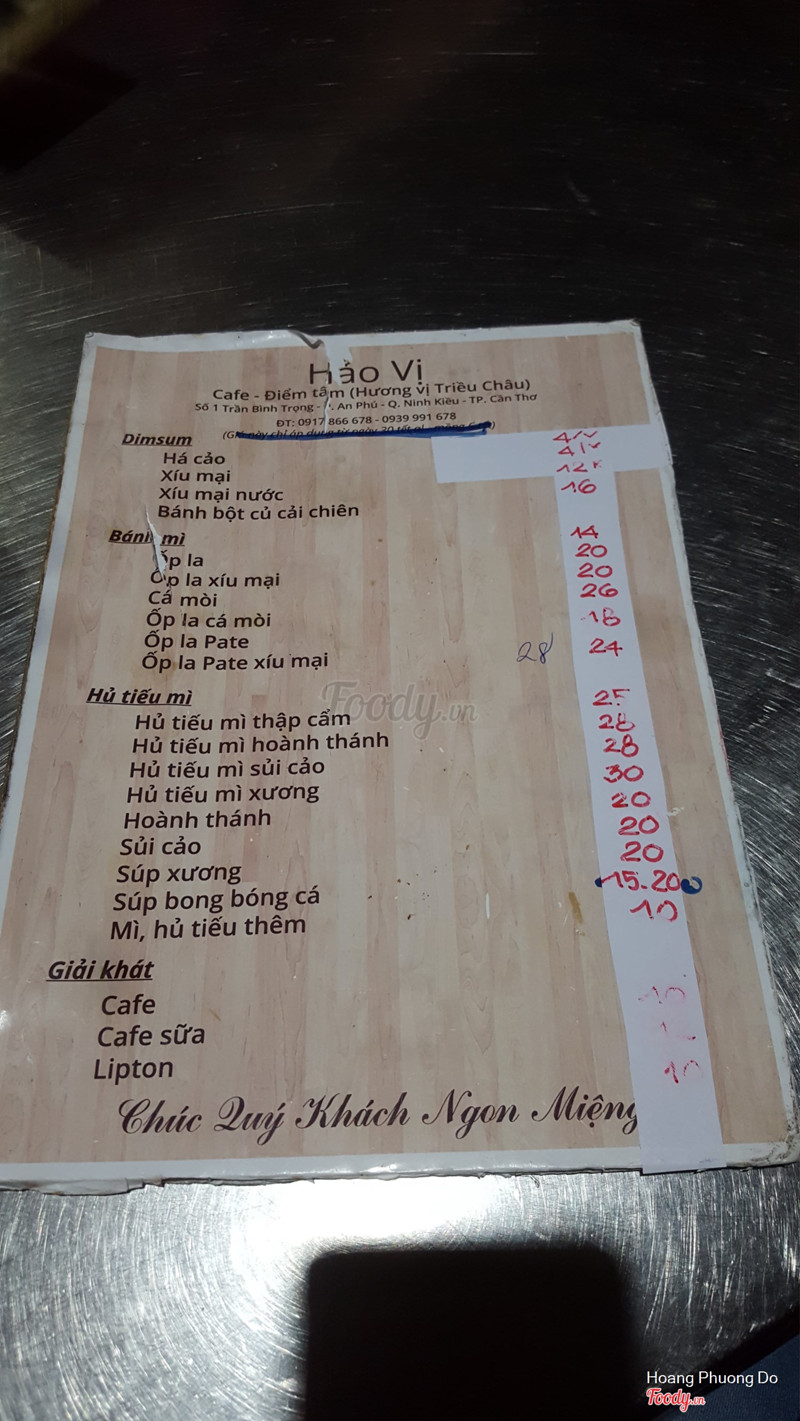 Hảo Vị
Cafe - Điểm tâm (Hương vị Triều Châu)
Số 1 Trần Bình Trọng - P. An Phú - Q. Ninh Kiều - TP. Cần Thơ
ĐT: 0917 866 678 - 0939 991 678
Dimsum
Há cảo
Xíu mại
Xíu mại nước 12k
Bánh bột củ cải chiên 16
Bánh mì
Ốp la 14
Ốp la xíu mại 20
Cá mòi 20
Ốp la cá mòi 26
Ốp la Pate 18
Ốp la Pate xíu mại 28 24
Hủ tiếu mì
Hủ tiếu mì thập cẩm 25
Hủ tiếu mì hoành thánh 28
Hủ tiếu mì sủi cảo 28
Hủ tiếu mì xương 30
Hoành thánh 20
Sủi cảo 20
Súp xương 20
Súp bong bóng cá 15-20
Mì, hủ tiếu thêm 10
Giải khát
Cafe 10
Cafe sữa
Lipton 10
Chúc Quý Khách Ngon Miệng
Foody.vn
Hoang Phuong Do
Foody.vn